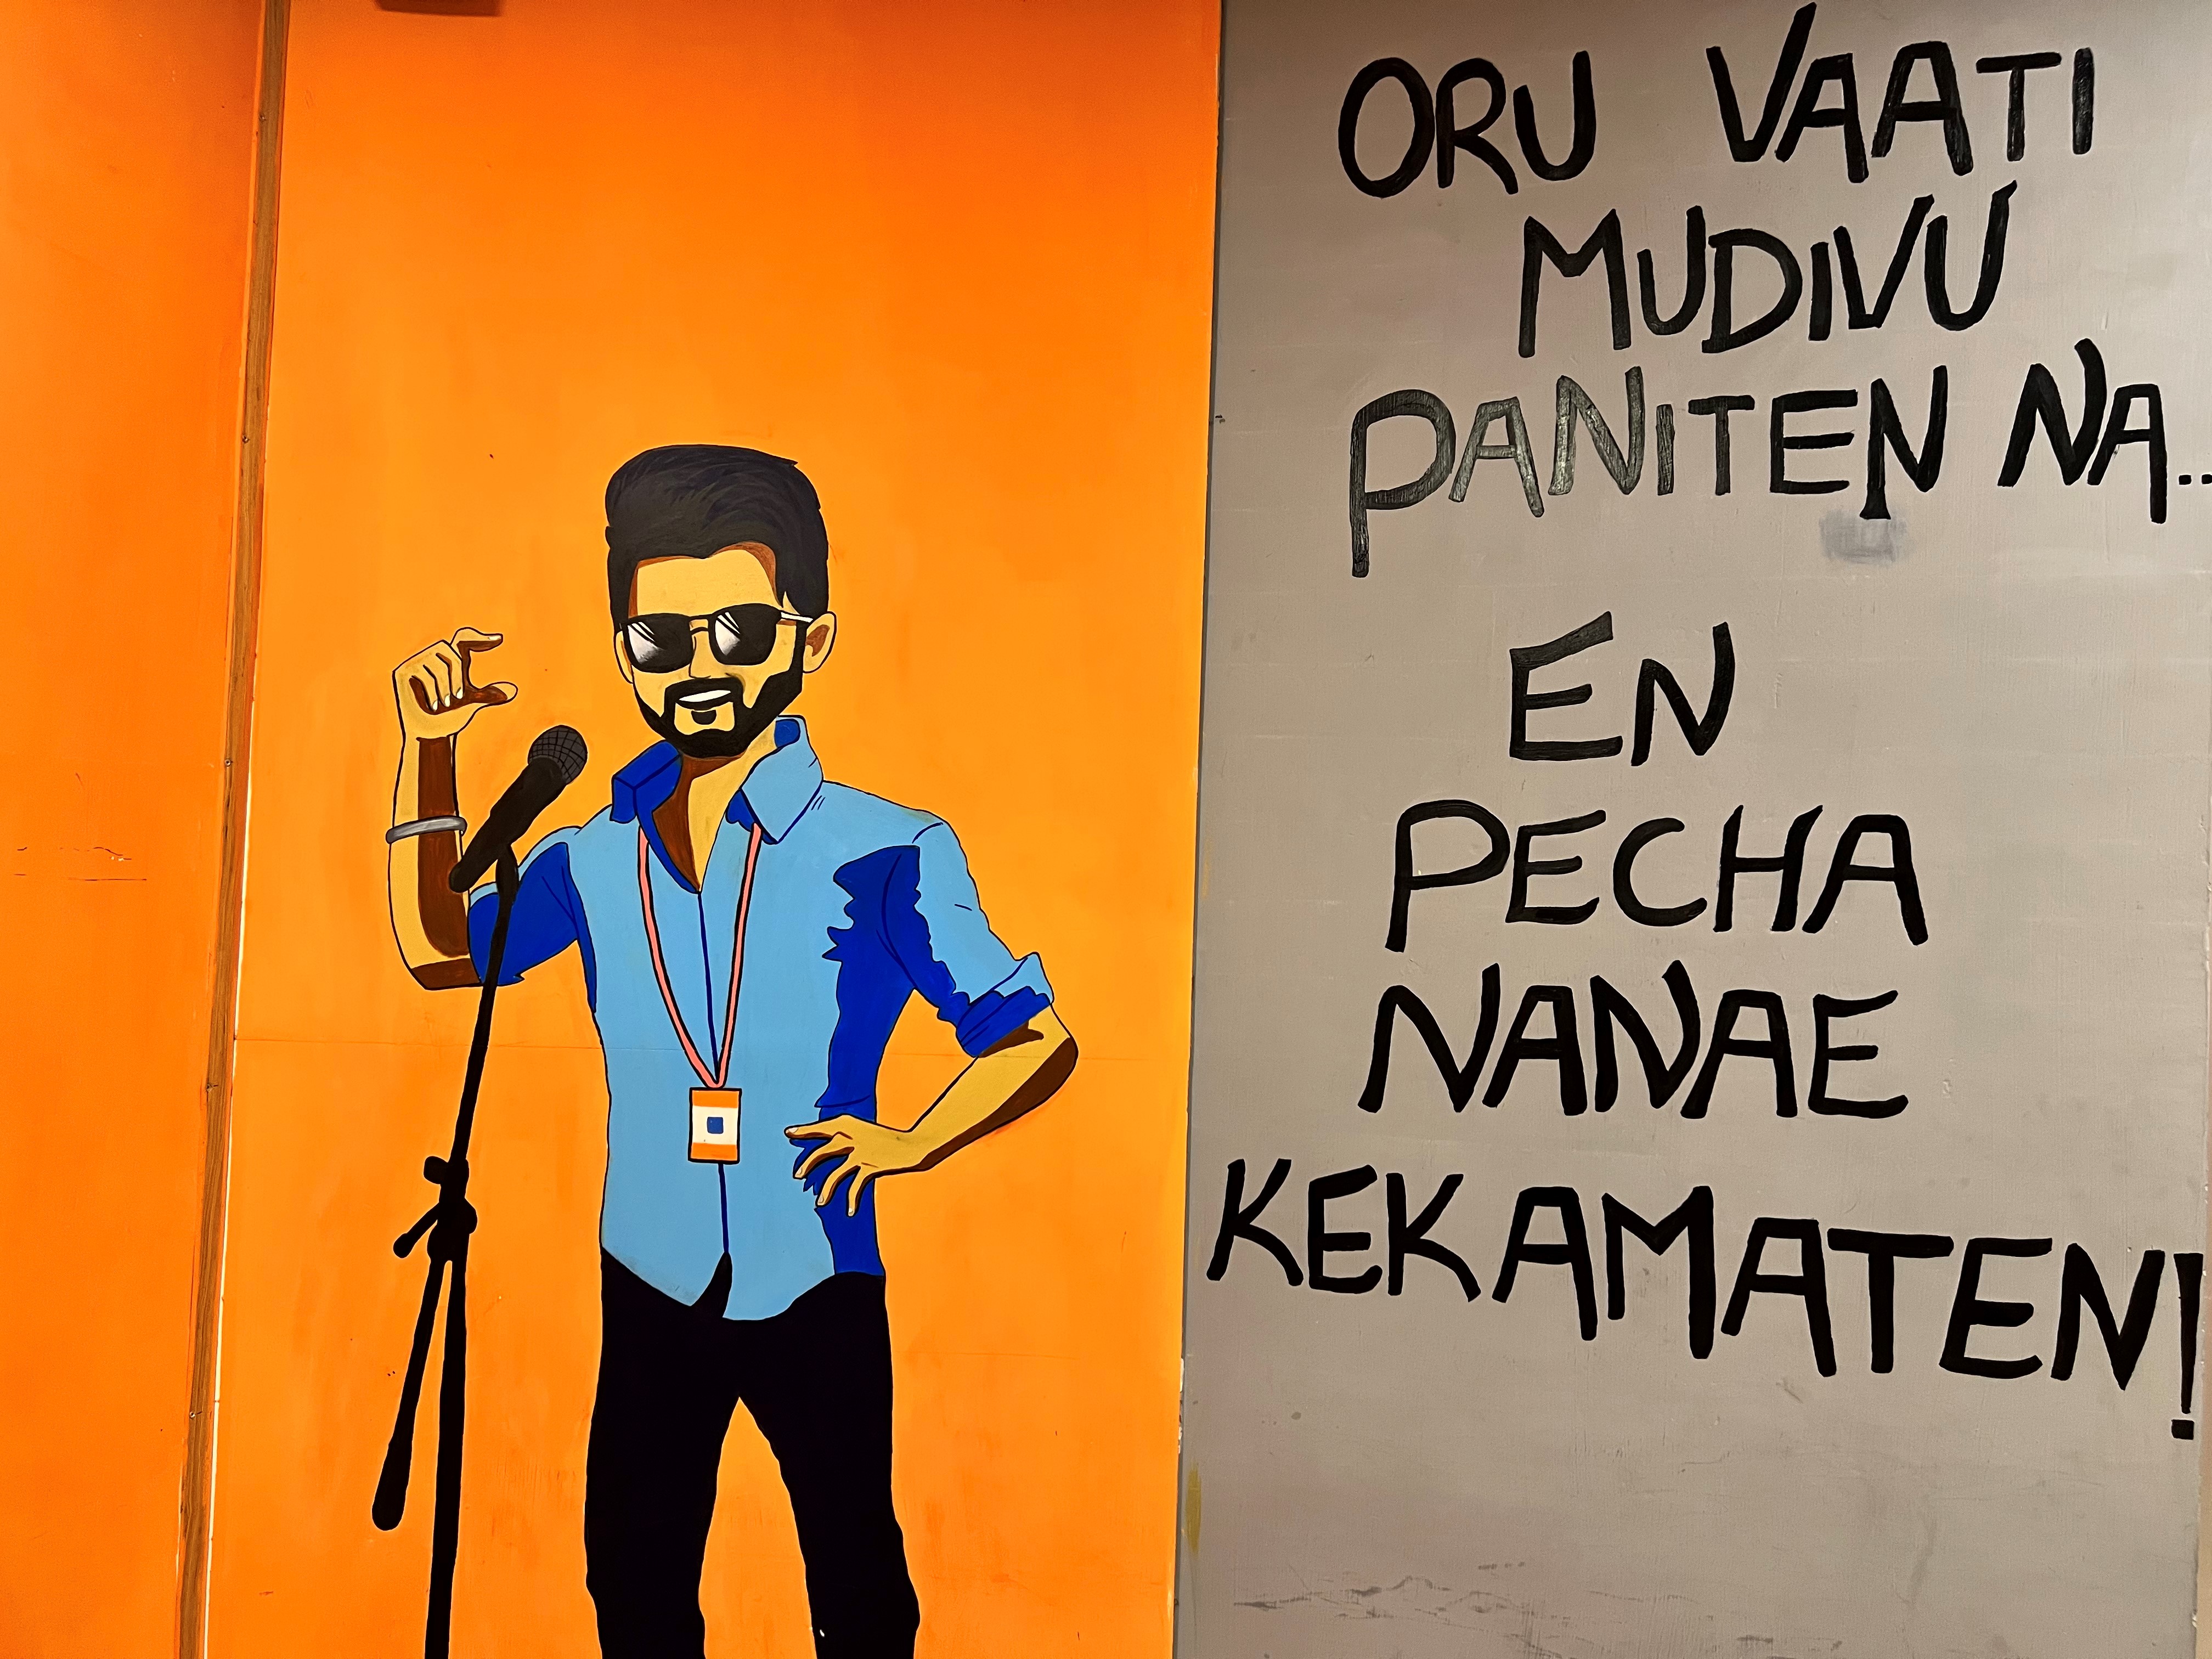 ORU VAATI
MUDIVU
PANITEN NA..
EN
PECHA
NANAE
KEKAMATEN!